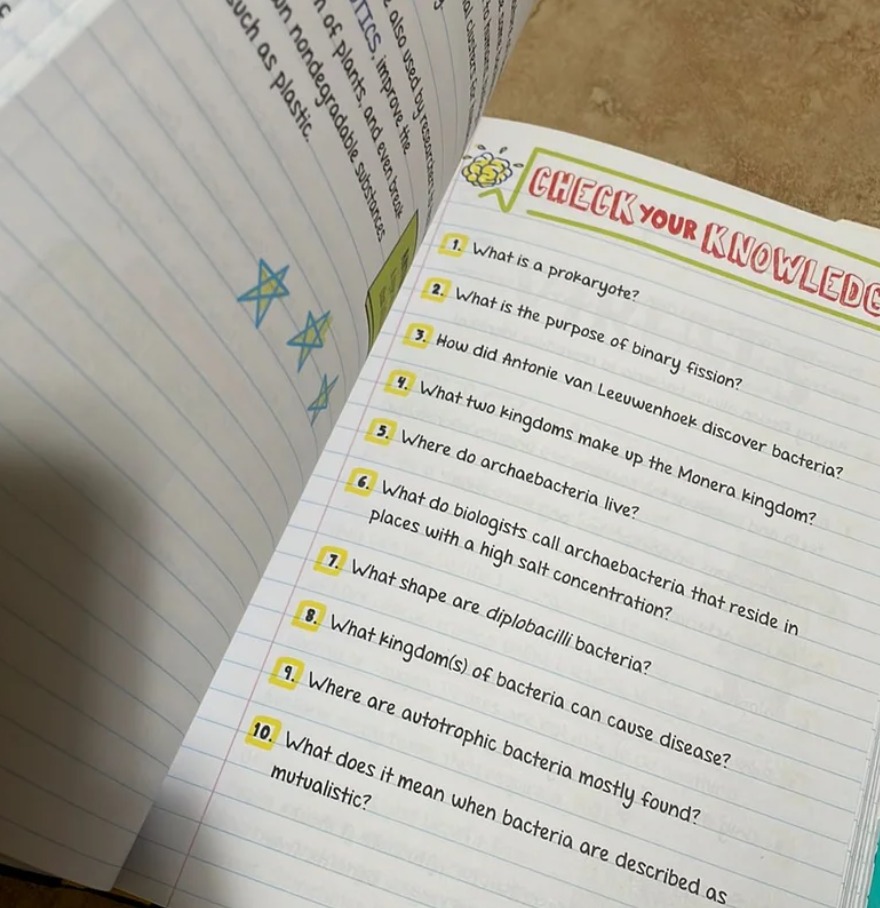 also used by researchers
TICS, improve the
of plants, and even break
nondegradable substances
such as plastic.
CHECK YOUR KNOWLEDG
1. What is a prokaryote?
2. What is the purpose of binary fission?
3. How did Antonie van Leeuwenhoek discover bacteria?
4. What two kingdoms make up the Monera kingdom?
5. Where do archaebacteria live?
6. What do biologists call archaebacteria that reside in
places with a high salt concentration?
7. What shape are diplobacilli bacteria?
8. What kingdom(s) of bacteria can cause disease?
9. Where are autotrophic bacteria mostly found?
10. What does it mean when bacteria are described as
mutualistic?